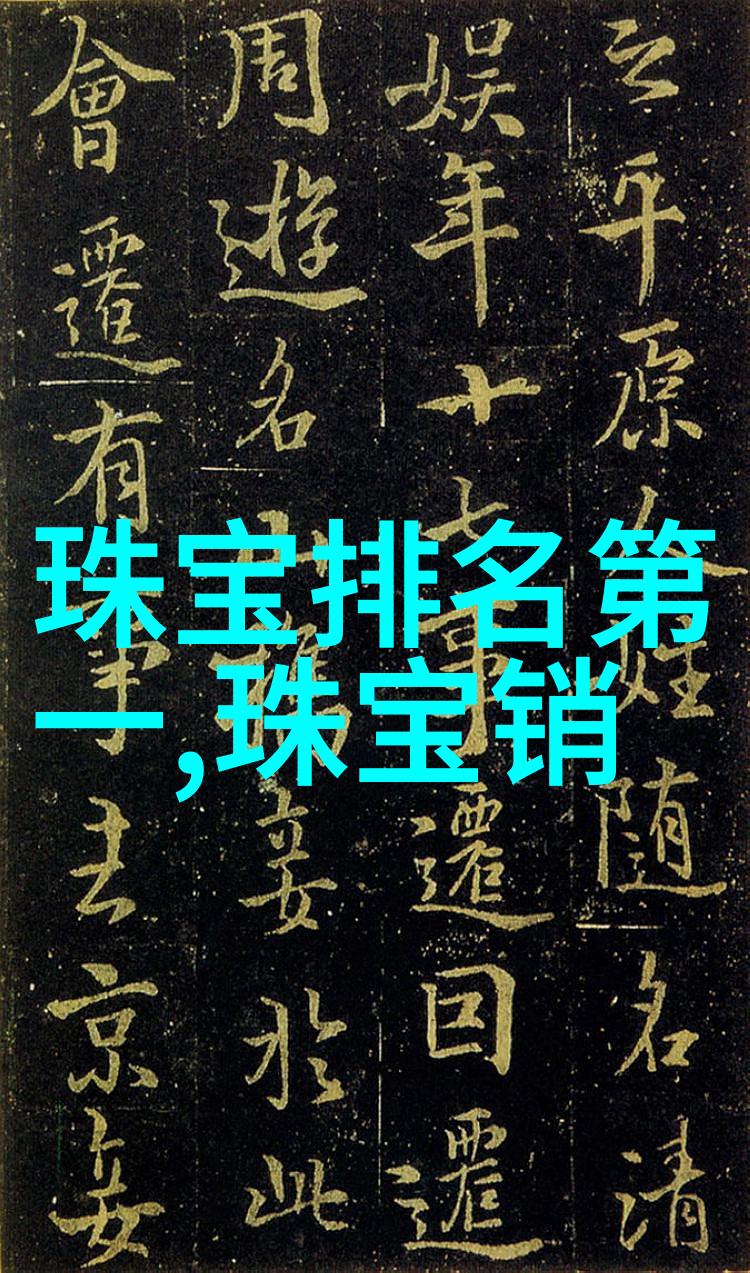 珠宝排名第
一,珠宝销
之平原人姓随名清
娱年十七事遷回遷
周遊名山妾於此
會遷有事去京妾